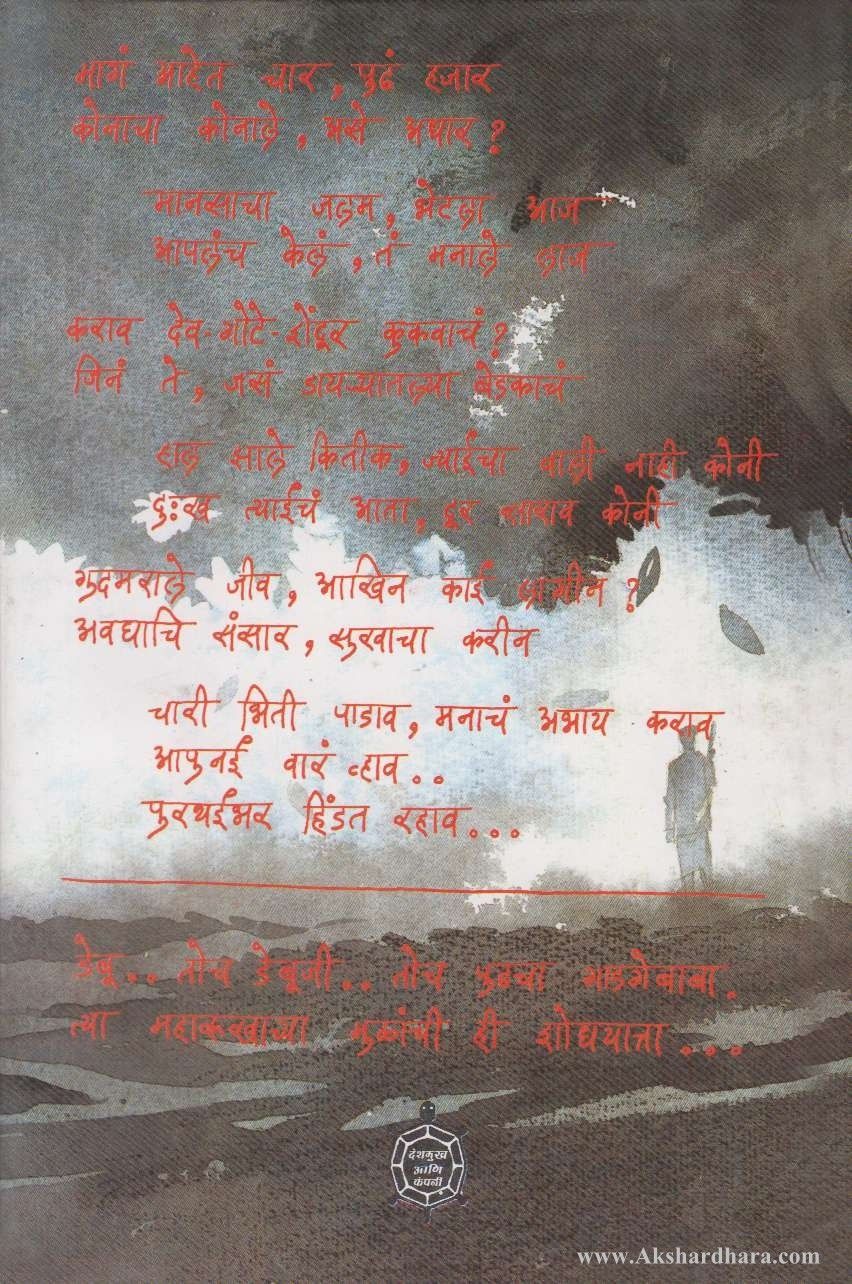 मागं आहेत चार, पुढं हजार
कोनाचा कोनाले, असे अधार?
मानसाचा जलम, भेटला आज
आपलंच केलं, तं मनाले लाज
कराव देव-गोटे-शेंदूर कुकवाचं?
जिनं ते, जसं डायऱ्यातल्या बेडकाचं
हाल साले कितीक, ज्याईचा वाली नाही कोनी
दुःख त्याईचं आता, दूर साराव कोनी
गुदमराले जीव, आखिन काई लागीन?
अवघाचि संसार, सुखाचा करीन
चारी भिती पाडाव, मनाचं अभाय कराव
आपुनई वारं व्हाव..
पुरथईभर हिंडत रहाव...
डेबू.. तोच डेबूजी.. तोच पुढचा गाडगेबाबा.
त्या महावृक्षाच्या मुळांची ही शोधयात्रा...
देशमुख
आणि
कंपनी
www.Akshardhara.com